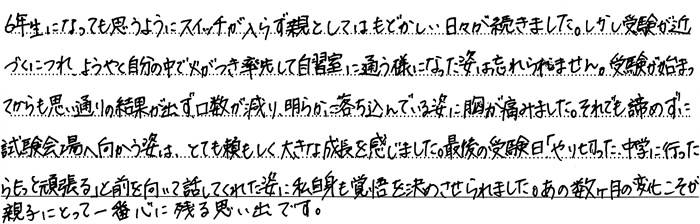 6年生になっても思うようにスイッチが入らず親としてはもどかしい日々が続きました。しかし受験が近
づくにつれ、ようやく自分の中で火がつき率先して自習室に通う様になった姿は忘れられません。受験が始まっ
てからも思い通りの結果が出ず口数が減り、明らかに落ち込んでいる姿に胸が痛みました。それでも諦めずに
試験会場へ向かう姿は、とても頼もしく大きな成長を感じました。最後の受験日「やり切った、中学に行った
らもっと頑張る」と前を向いて話してくれた姿に私自身も覚悟を決めさせられました。あの数ヶ月の変化こそが
親子にとって一番心に残る思い出です。